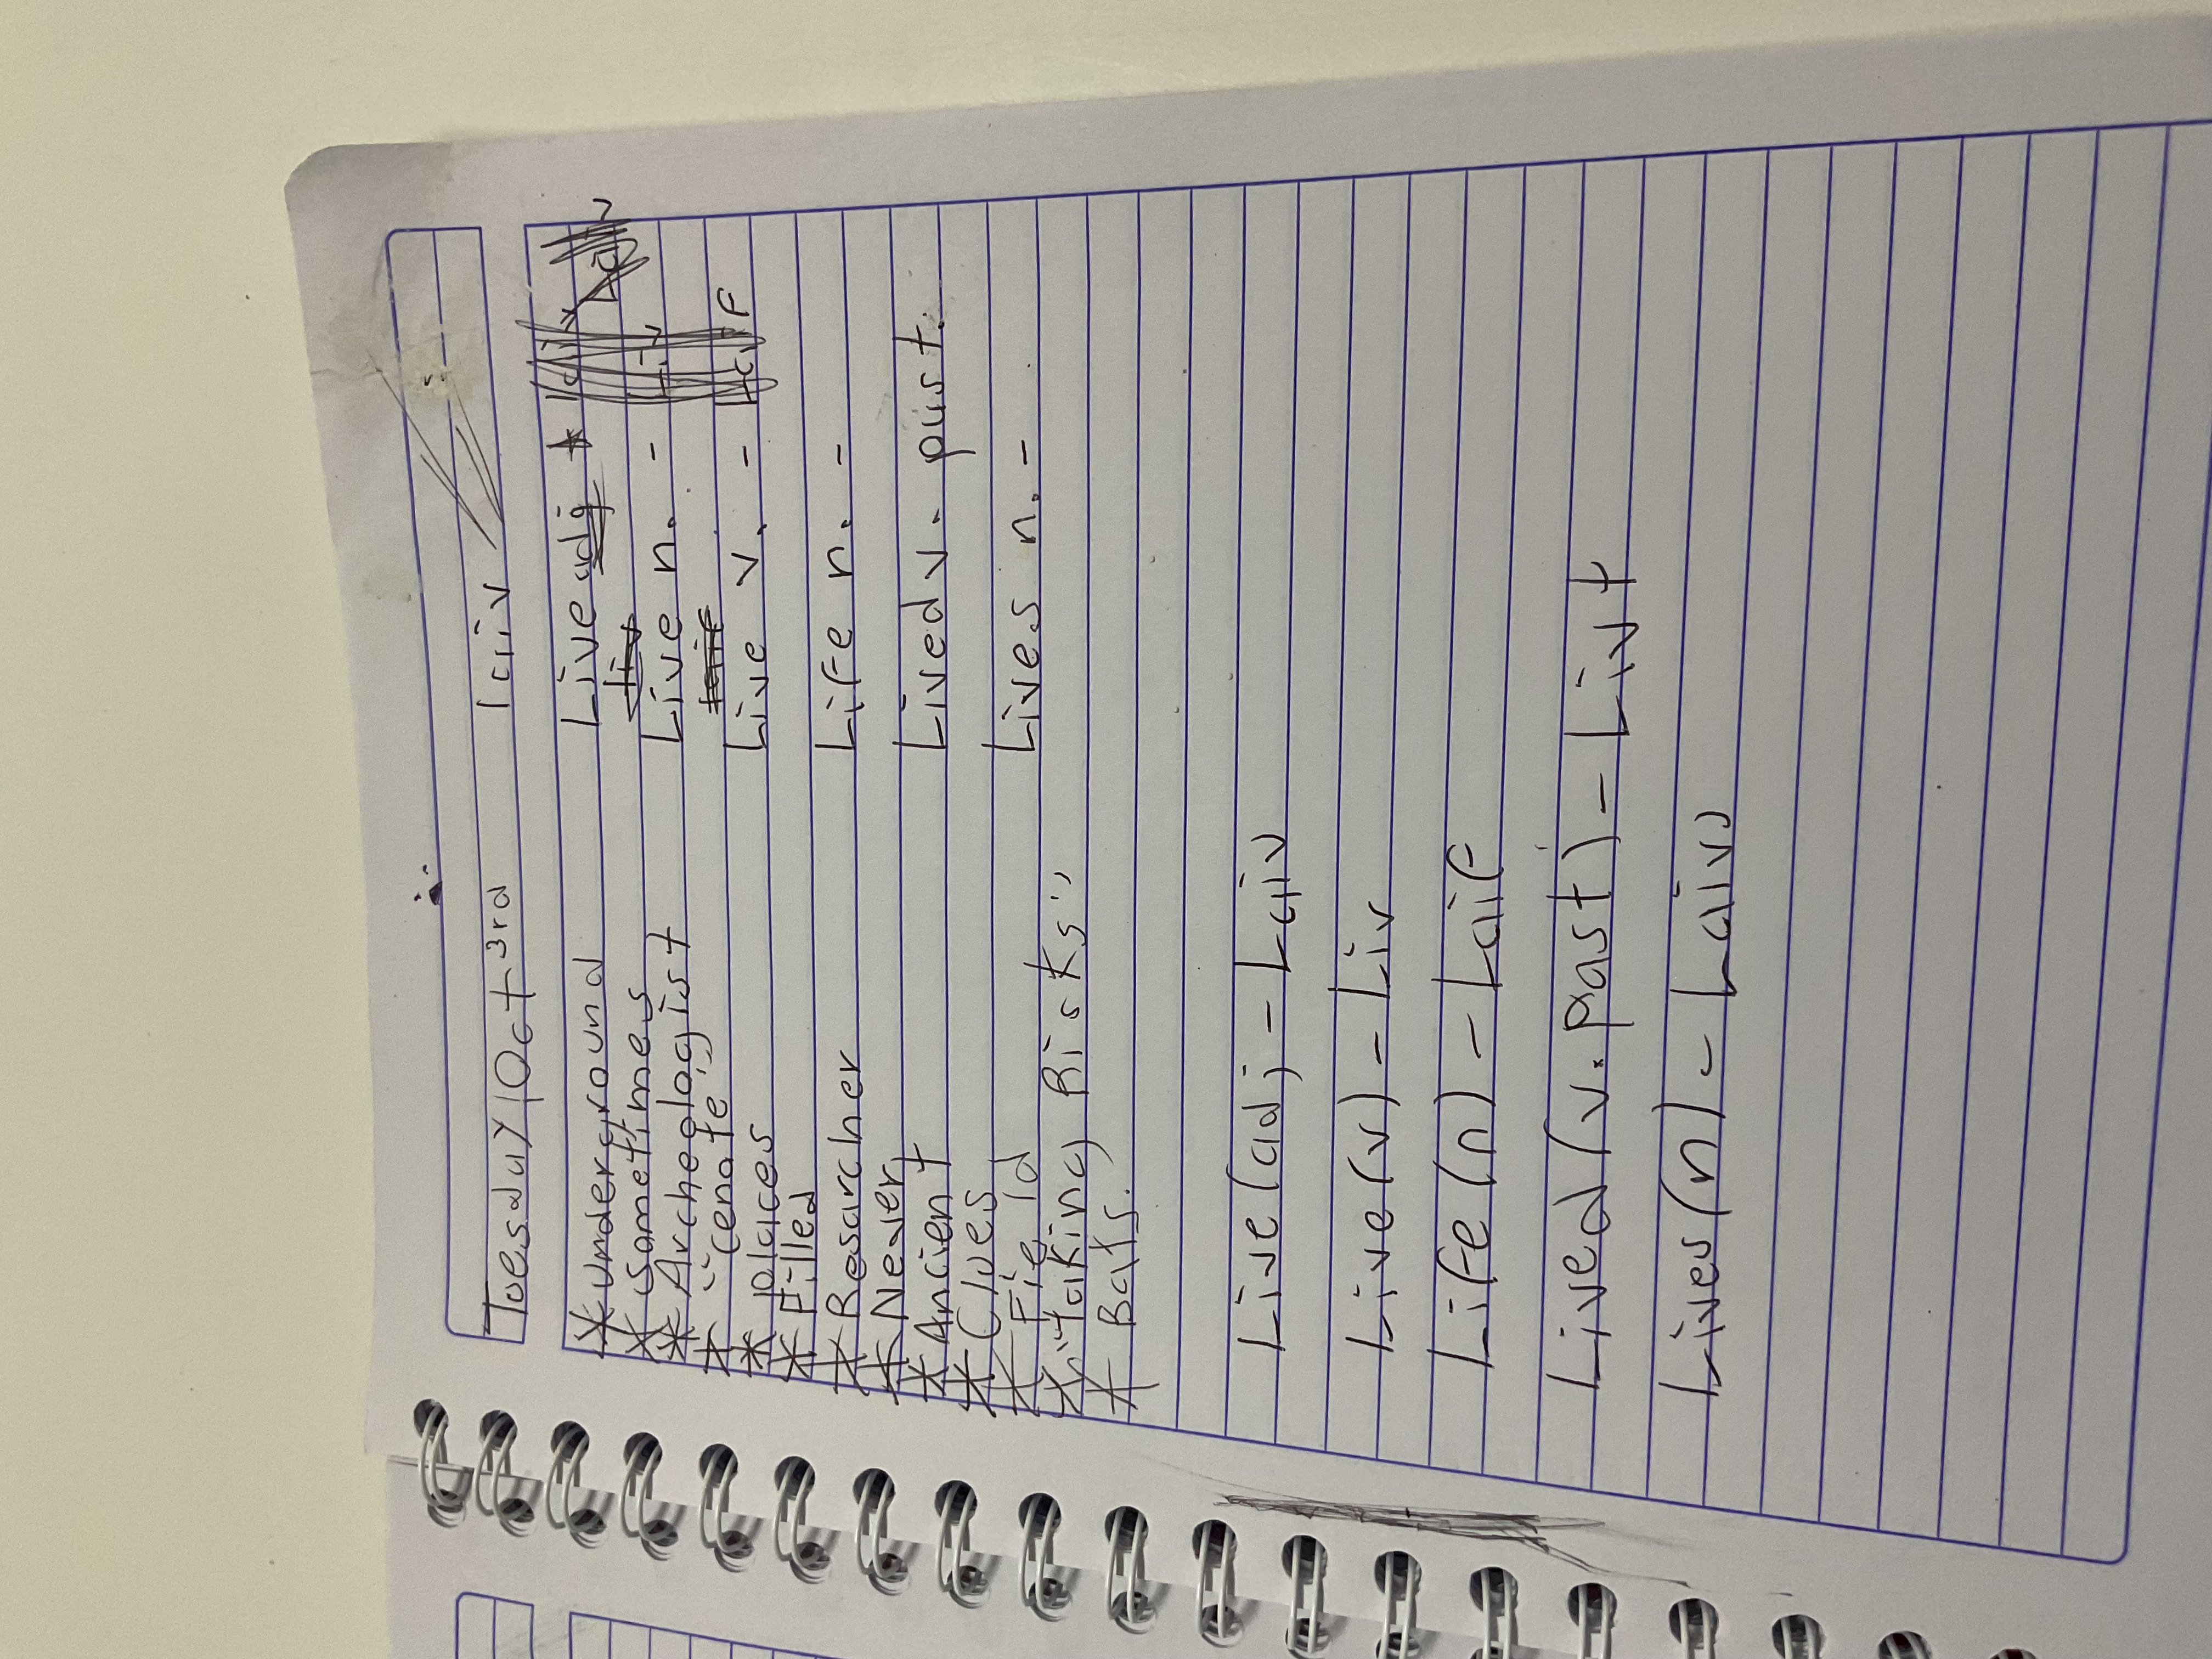 Tuesday / Oct 3rd laiv
* underground
* sometimes
* Archeologist
* "cenote"
* places
* Filled
* Researcher
* Never
* Ancient
* Clues
* Field
* "taking Risks"
* Bats.
Live adj
Live n. -
Live v. -
Life n. -
Lived v. past.
Lives n. -
Live (adj - Laiv
Live (v) - Liv
Life (n) - Laif
Lived (v. past) - Livt
Lives (n) - Laivs